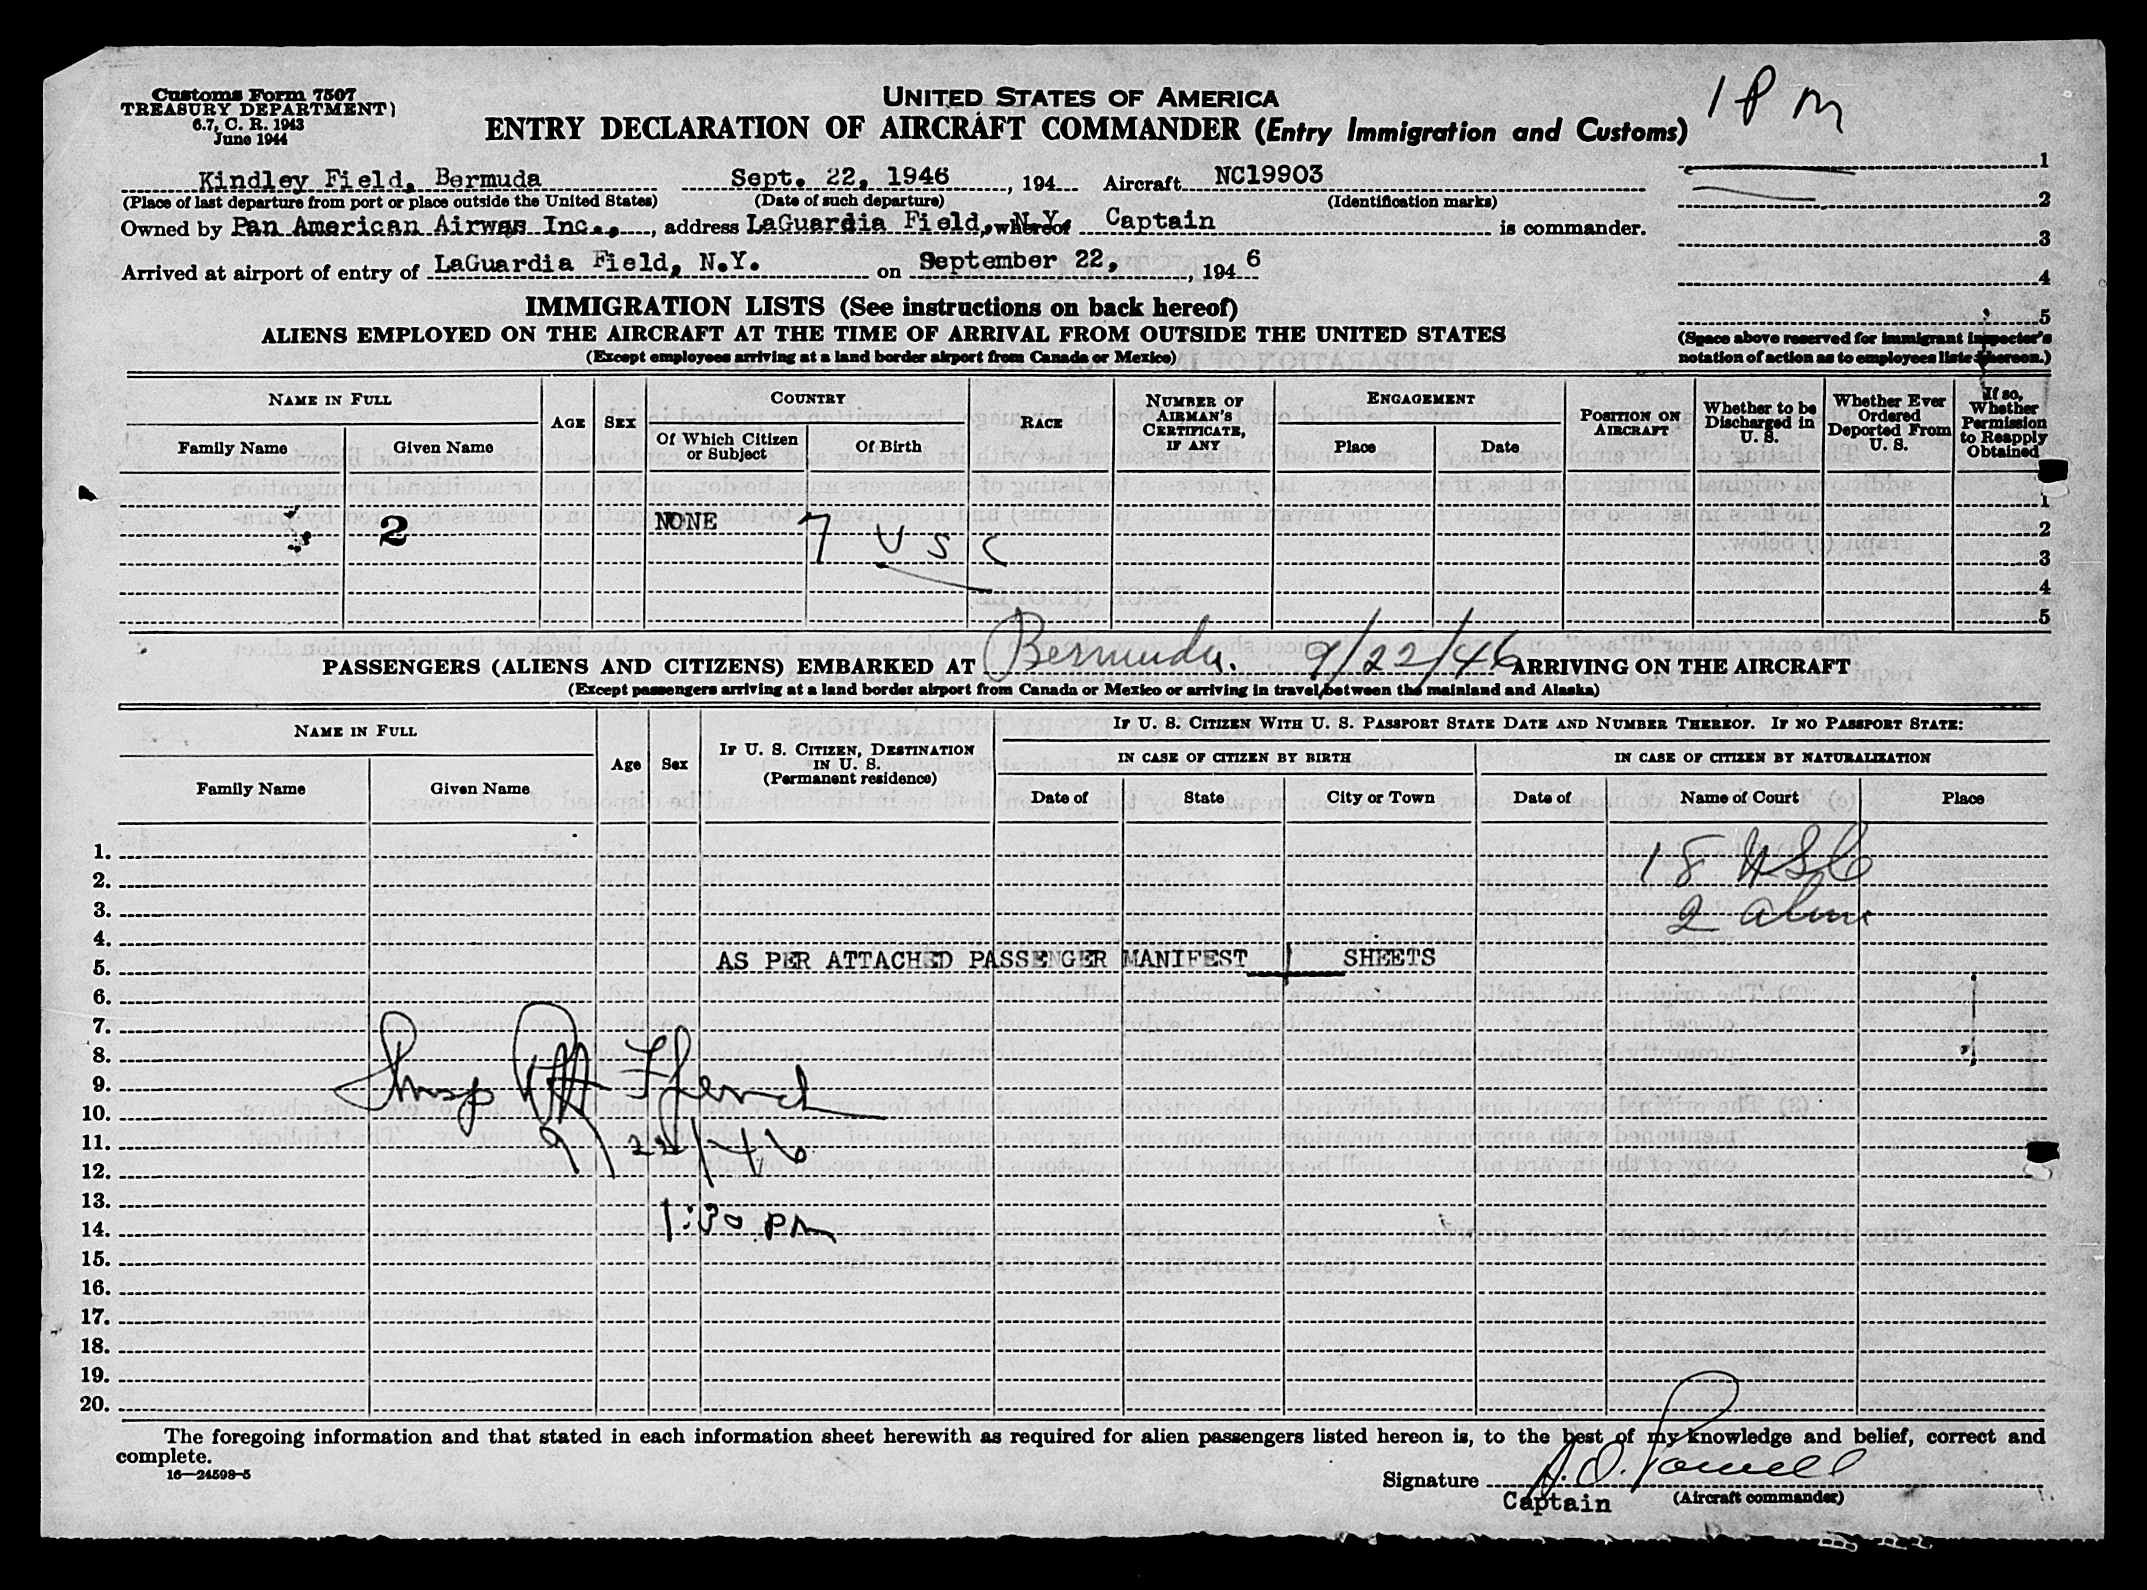 Customs Form 7507
TREASURY DEPARTMENT)
6.7, C. R. 1943
June 1944
UNITED STATES OF AMERICA
ENTRY DECLARATION OF AIRCRAFT COMMANDER (Entry Immigration and Customs)
1 P m
Kindley Field, Bermuda Sept. 22, 1946, 194 Aircraft NC19903
(Place of last departure from port or place outside the United States) (Date of such departure) (Identification marks)
Owned by Pan American Airways Inc., address LaGuardia Field, N.Y. whereof Captain is commander.
Arrived at airport of entry of LaGuardia Field, N.Y. on September 22, 1946
1
2
3
4
5
(Space above reserved for immigrant inspector's
notation of action as to employees listed hereon.)
IMMIGRATION LISTS (See instructions on back hereof)
ALIENS EMPLOYED ON THE AIRCRAFT AT THE TIME OF ARRIVAL FROM OUTSIDE THE UNITED STATES
(Except employees arriving at a land border airport from Canada or Mexico)
NAME IN FULL
Family Name
Given Name
AGE
SEX
COUNTRY
Of Which Citizen or Subject
Of Birth
RACE
NUMBER OF AIRMAN'S CERTIFICATE, IF ANY
ENGAGEMENT
Place
Date
POSITION ON AIRCRAFT
Whether to be Discharged in U. S.
Whether Ever Ordered Deported From U. S.
If so, Whether Permission to Reapply Obtained
1
2 NONE 7 U S C 2
3
4
5
PASSENGERS (ALIENS AND CITIZENS) EMBARKED AT Bermuda. 9/22/46 ARRIVING ON THE AIRCRAFT
(Except passengers arriving at a land border airport from Canada or Mexico or arriving in travel between the mainland and Alaska)
NAME IN FULL
Family Name
Given Name
Age
Sex
IF U. S. CITIZEN, DESTINATION IN U. S.
(Permanent residence)
IF U. S. CITIZEN WITH U. S. PASSPORT STATE DATE AND NUMBER THEREOF. IF NO PASSPORT STATE:
IN CASE OF CITIZEN BY BIRTH
Date of
State
City or Town
IN CASE OF CITIZEN BY NATURALIZATION
Date of
Name of Court
Place
1. 18 USC
2.
3. 2 alins
4.
5. AS PER ATTACHED PASSENGER MANIFEST 1 SHEETS
6.
7.
8.
9.
10.
11. 9/22/46
12.
13.
14. 1:30 pm
15.
16.
17.
18.
19.
20.
The foregoing information and that stated in each information sheet herewith as required for alien passengers listed hereon is, to the best of my knowledge and belief, correct and
complete.
16—24598-5
Signature A. O. Powell
Captain (Aircraft commander)